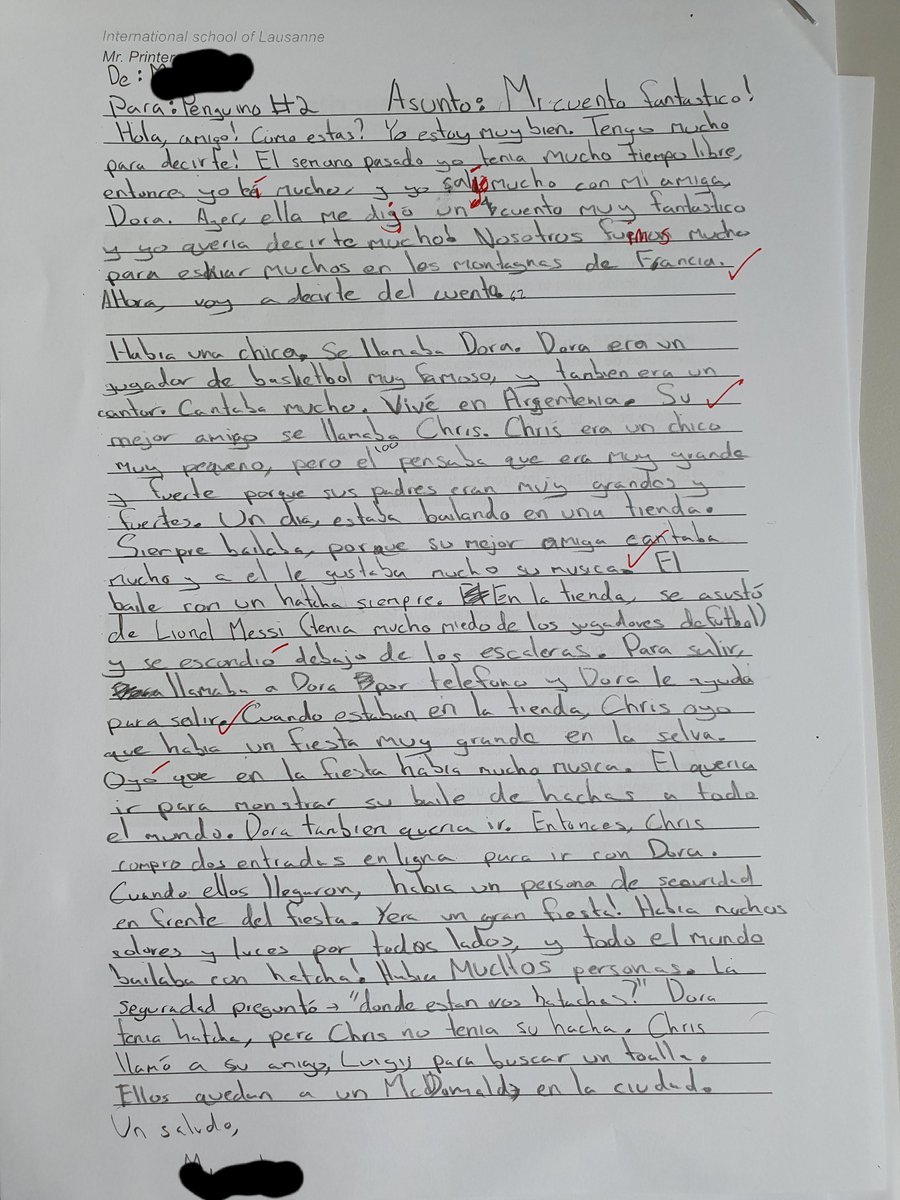 International school of Lausanne
Mr. Printer
De: M
Para: Penguino #2 Asunto: Mi cuento fantastico!
Hola, amigo! Como estas? Yo estoy muy bien. Tengo mucho
para decirte! El semano pasado yo tenia mucho tiempo libre,
entonces yo mucho, y yo mucho con mi amiga,
Dora. Ayer, ella me digó un cuento muy fantastico
y yo queria decirte mucho! Nosotros fuimos mucho
para esquiar muchos en los montagnas de Francia.
Ahora, voy a decirte del cuento. 62
Habia una chica. Se llamaba Dora. Dora era un
jugador de basketbol muy famoso, y tanbien era un
cantor. Cantaba mucho. Vivé en Argentenia. Su
mejor amigo se llamaba Chris. Chris era un chico
muy pequeno, pero el 100 pensaba que era muy grande
y fuerte porque sus padres eran muy grandes y
fuertes. Un dia, estaba bailando en una tienda.
Siempre bailaba, porque su mejor amiga cantaba
mucho y a el le gustaba mucho su musica. El
baile con un hatcha siempre. En la tienda, se asustó
de Lionel Messi (tenia mucho miedo de los jugadores de futbol)
y se escondió debajo de los escaleras. Para salir,
llamaba a Dora por telefono y Dora le ayuda
para salir. Cuando estaban en la tienda, Chris oyo
que habia un fiesta muy grande en la selva.
Oyó que en la fiesta habia mucho musica. El queria
ir para monstrar su baile de hachas a todo
el mundo. Dora tanbien queria ir. Entonces, Chris
compro dos entradas en ligna para ir con Dora.
Cuando ellos llegaron, habia un persona de seguridad
en frente del fiesta. Yera un gran fiesta! Habia muchos
colores y luces por todos lados, y todo el mundo
bailaba con hatcha! Habia MUCHOS personas. La
seguradad preguntó → "donde estan vos hatachas?" Dora
tenia hatcha, pero Chris no tenia su hacha. Chris
llamó a su amigo, Luigi, para buscar un toalla.
Ellos quedan a un McDonalds en la ciudad.
Un saludo,